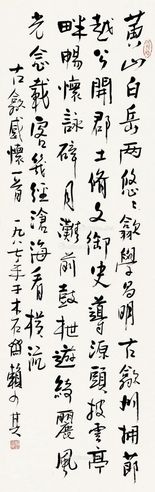 黄山白岳两悠々歙學昌明古歙州拥節
越公開郡土脩文御史導源頭披雲亭
畔暢懷詠碎月灘前鼓枻遊綺麗風
光念載客幾經滄海看橫流
古歙感懷一首一九八七年于木石齋賴少其